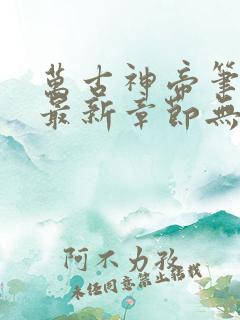 萬古神帝筆
最新章節無
阿不力孜
未經同意禁止轉載